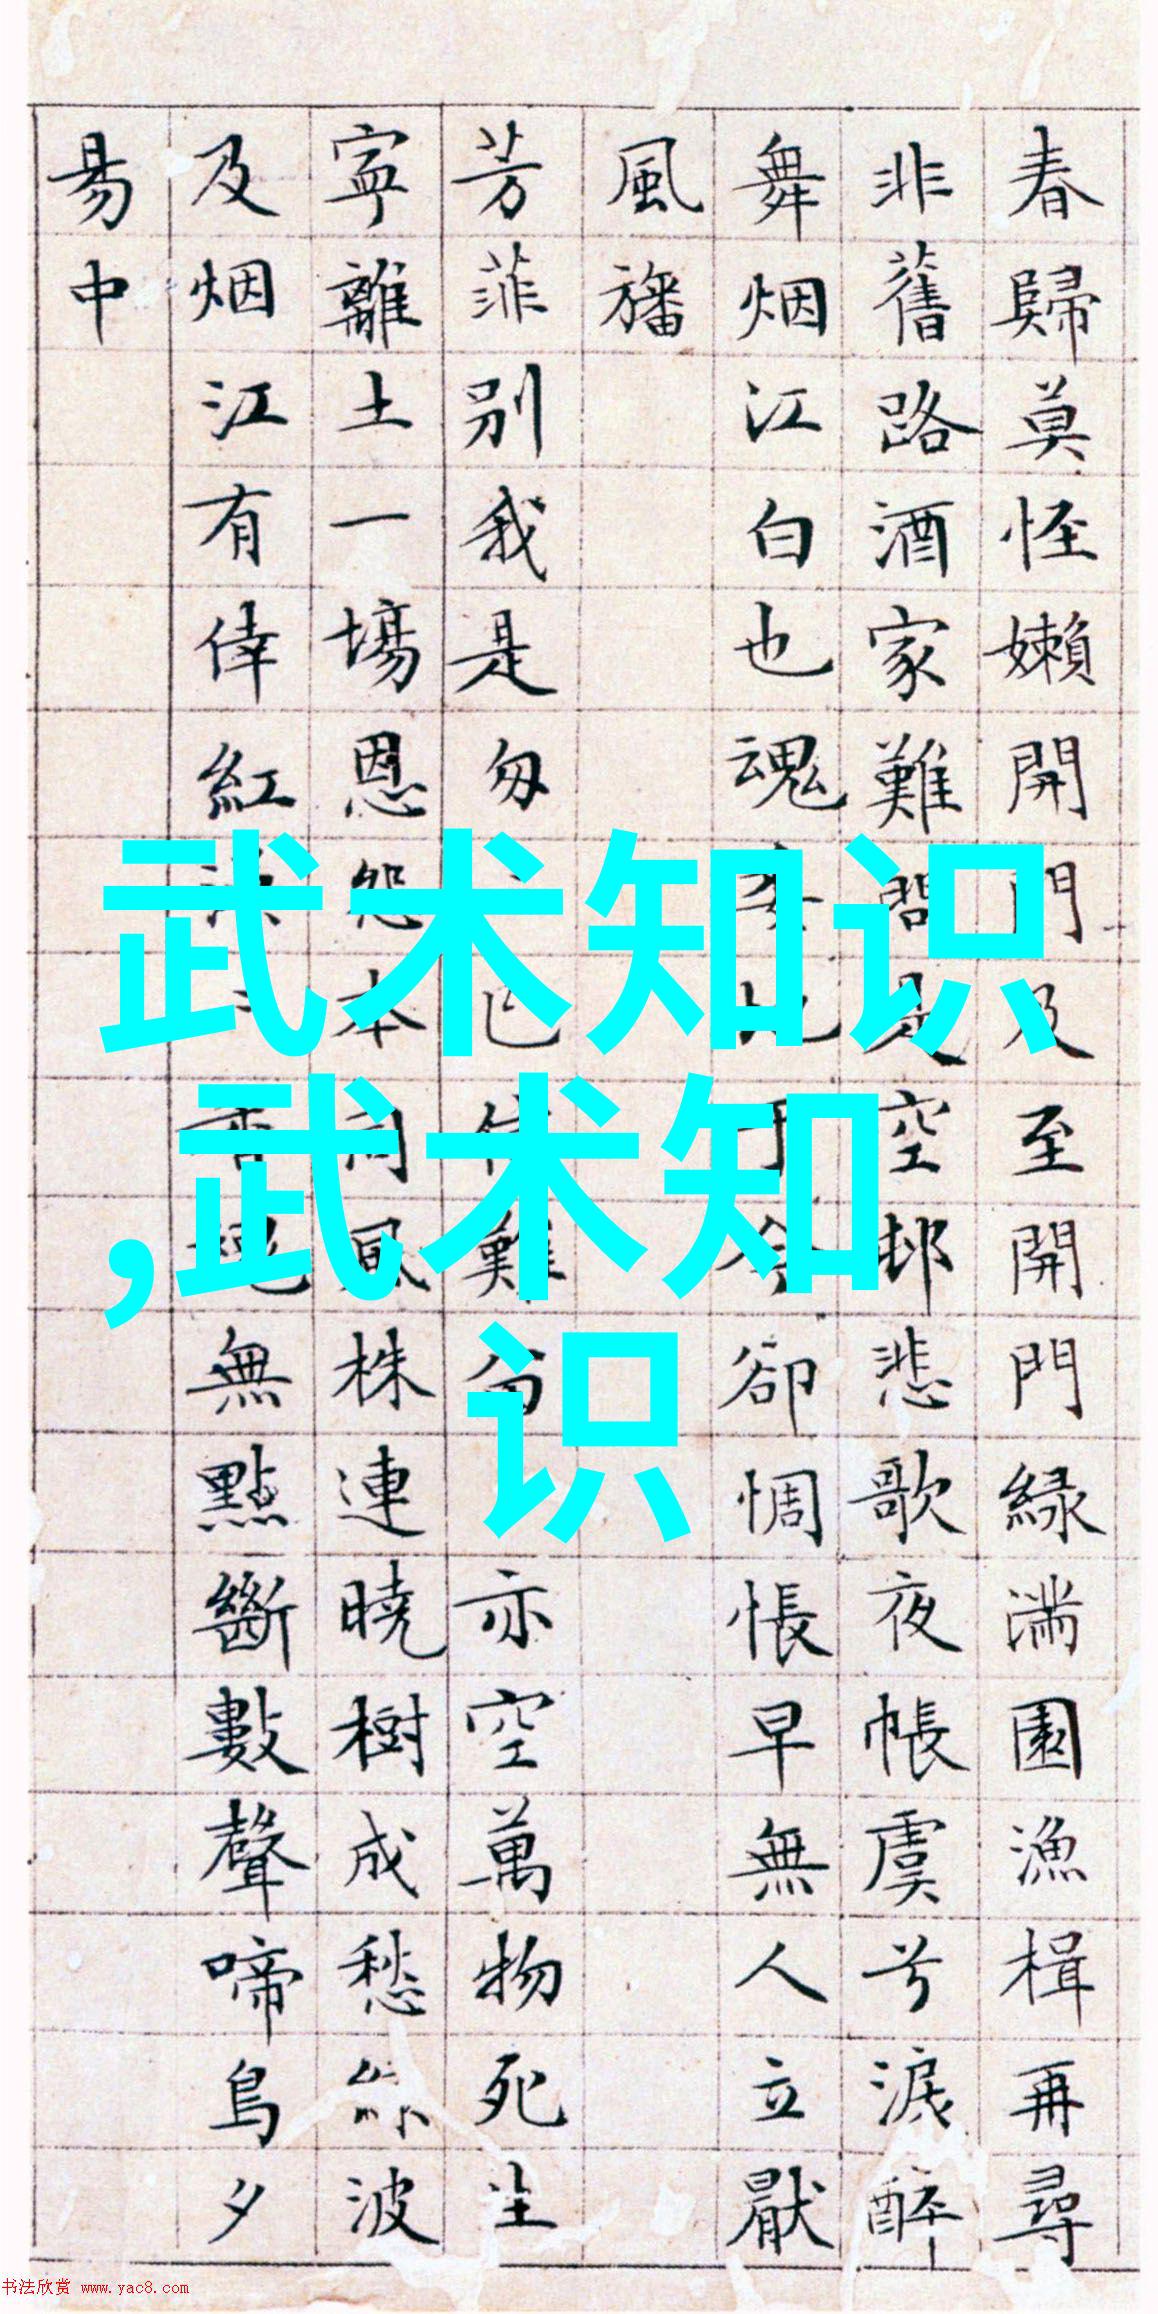 春歸莫怪嬾開門及至開門緑滿園漁楫再尋
非舊路酒家難問是空邨悲歌夜帳虞兮淚醉
舞烟江白也魂卻惆悵早無人立厭
風旛
芳菲別我是匆難亦空萬物死生
寧離土一場恩怨本同風株連曉樹成愁波
及烟江有倖紅無點斷數聲啼鳥夕
易中
武术知识
,武术知
识
书法欣赏 www.yac8.com